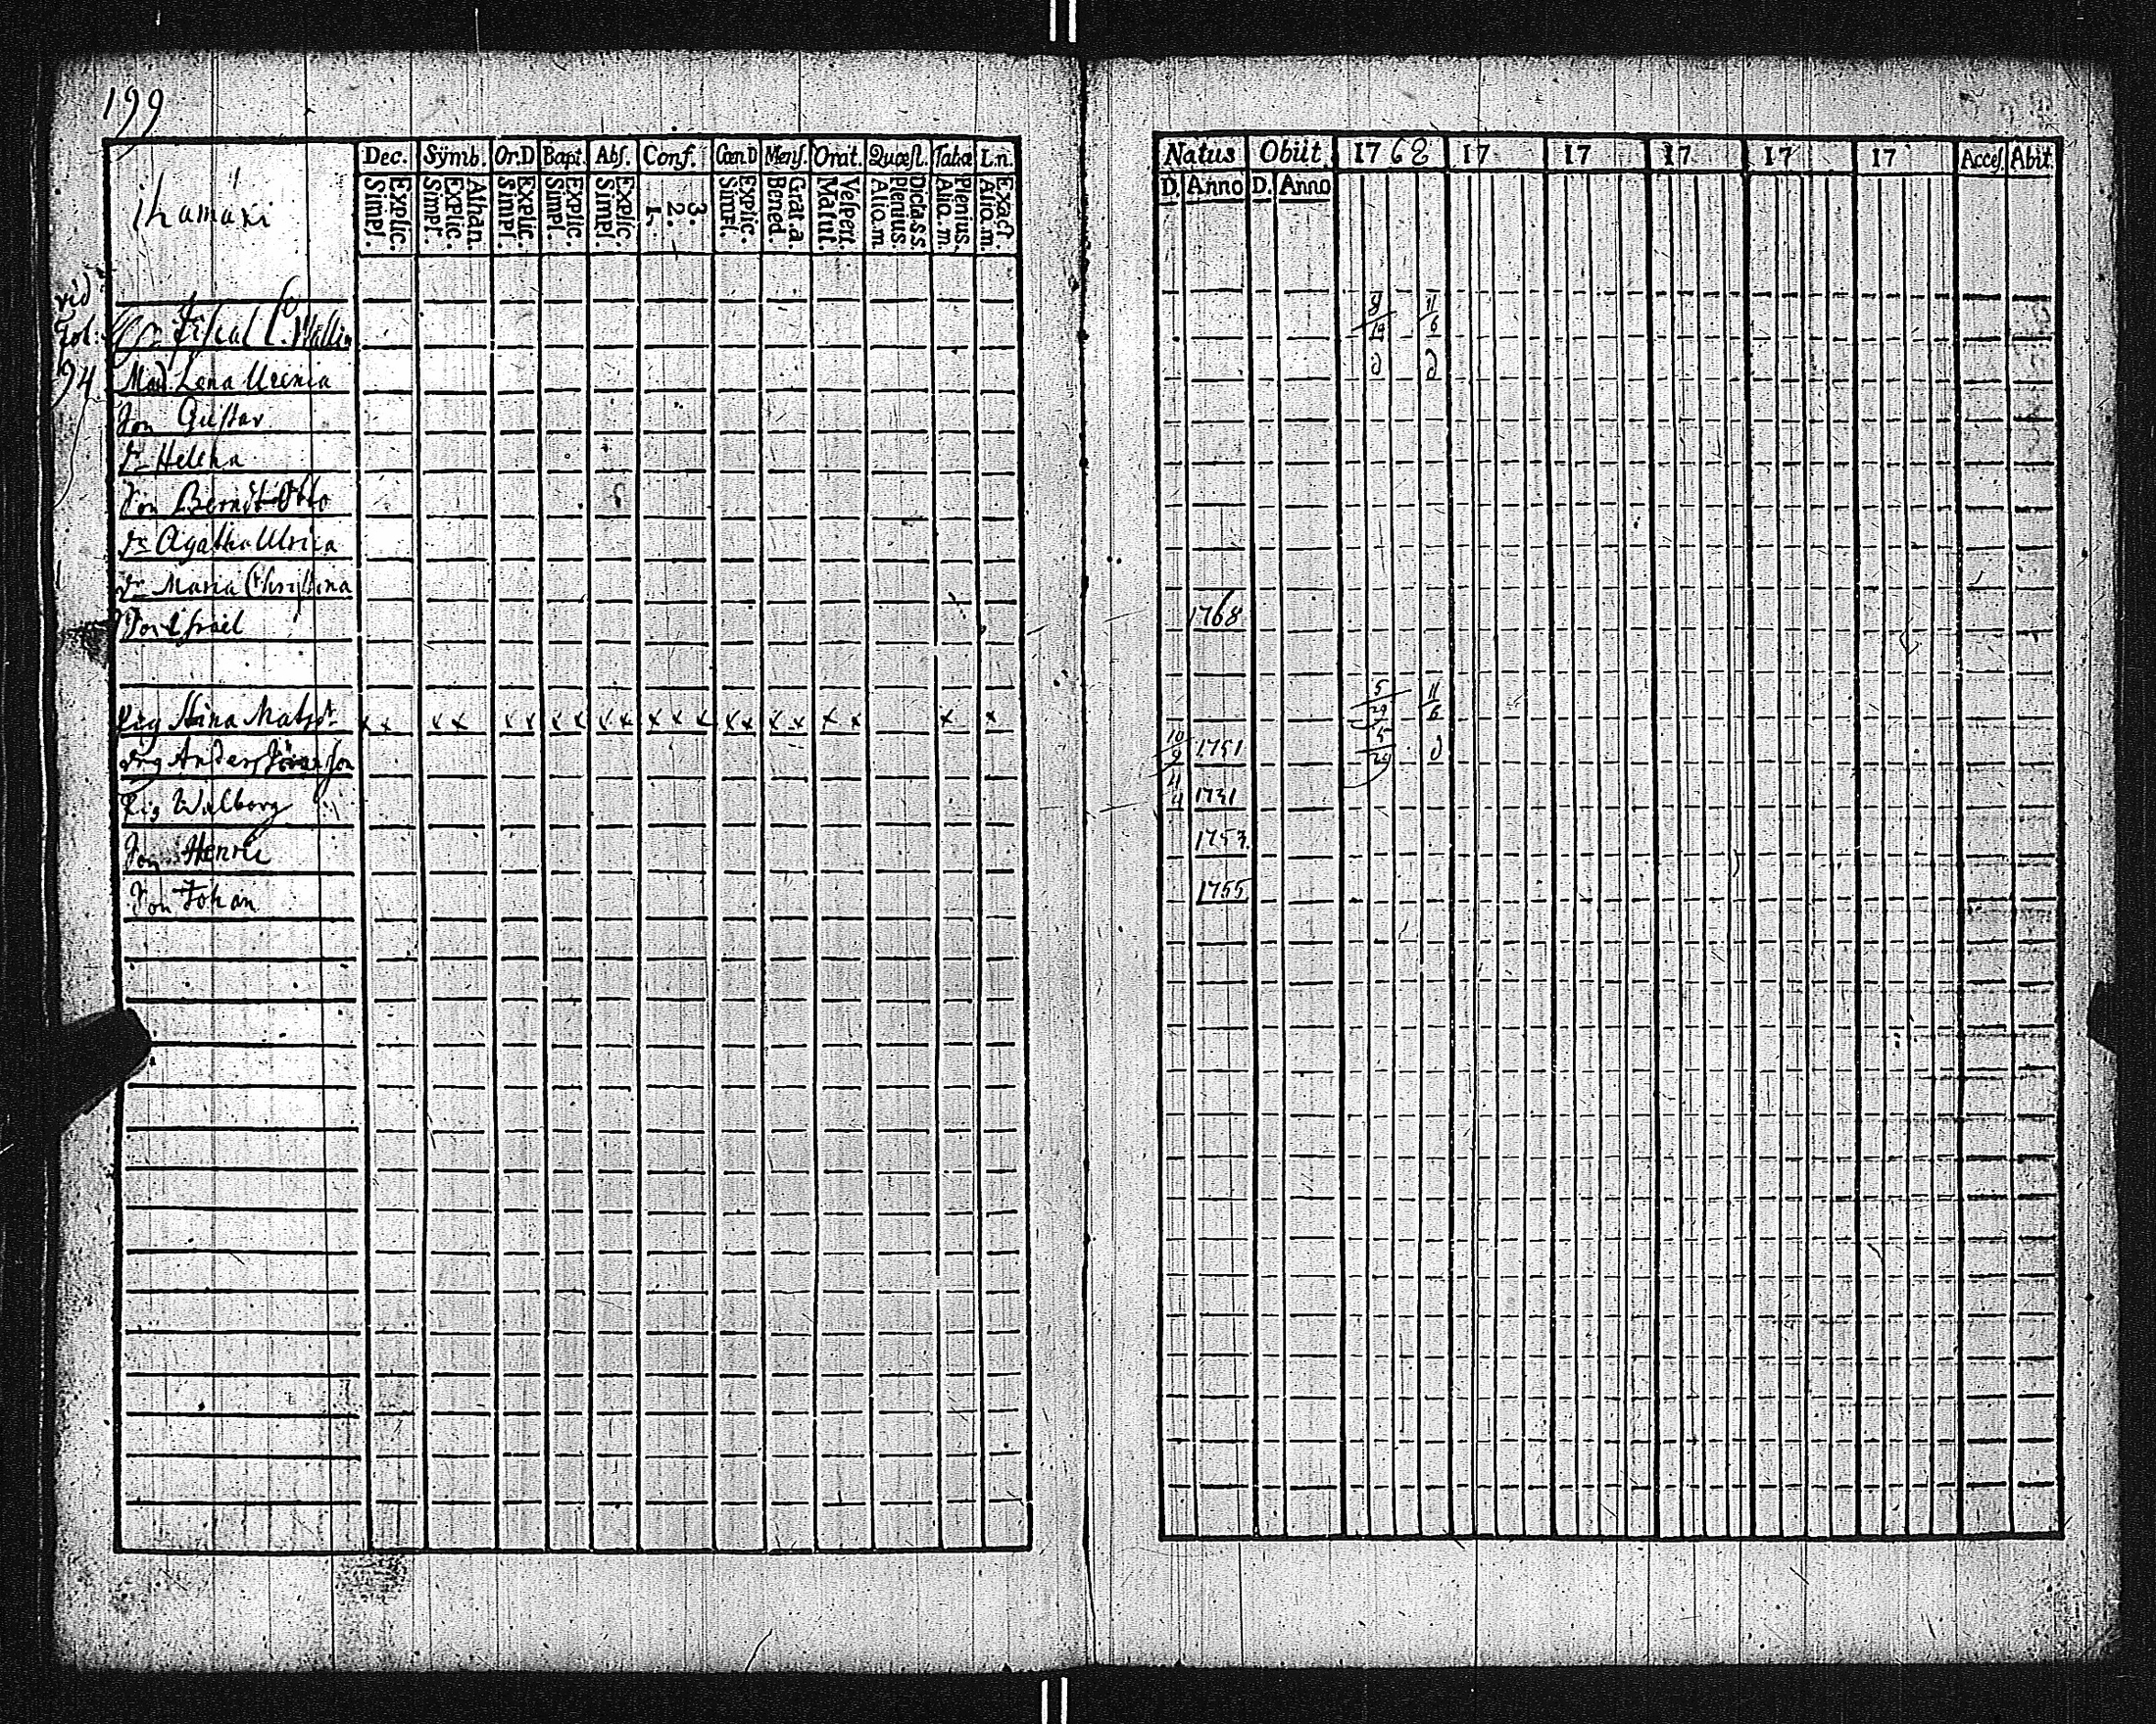 199
Dec. Symb. Or.D Bapt. Abſ. Conf. Cœn.D Menſ. Orat. Quæſt. Tabæ L.n.
Simpl. Explic. Simpl. Explic. Athan. Simpl. Explic. Simpl. Explic. Simpl. Explic. 1. 2. 3. Simpl. Explic. Bened. Grat.a. Matut. Veſpert. Alio.m. Plenius. Dicta.s.s. Alio.m. Plenius. Alio.m. Exact.
Natus Obiit 1768 17 17 17 17 17 Acceſ. Abit.
D. Anno D. Anno
ihamäki
vid
Fol: Fiskal C. Wallin 9/19 11/6
94 Mad. Lena Ur∫inia d d
Son Gustav
Dr Helena
Son Berndt Otto
Dr Agatha Ulrica
Dr Maria Christina
Son Israel 1768
Pig Stina Matsdr x x x x x x x x x x x x x x x x x x x x x 5/29 11/6
Drg Anders Jöransson 10/9 1751 5/29 d
Pig Walborg 4/4 1731
Son Henric 1753
Son Johan 1755